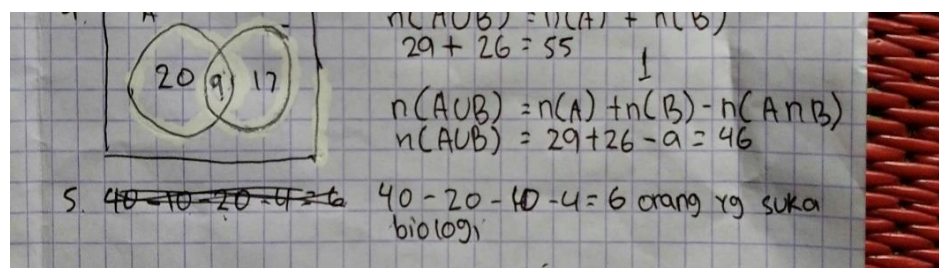 4. A
n(AUB) = n(A) + n(B)
29 + 26 = 55
1
20 9 17
n(AUB) = n(A) + n(B) - n(AnB)
n(AUB) = 29 + 26 - 9 = 46
5. 40 - 10 - 20 - 4 = 6 40 - 20 - 10 - 4 = 6 orang yg suka
biologi